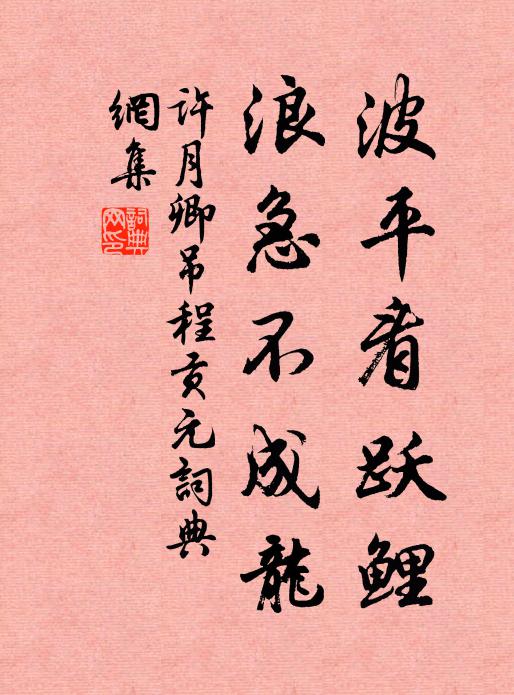 波平看跃鲤
浪急不成龍
许月卿吊程贡元詞典
網集
詞典网印